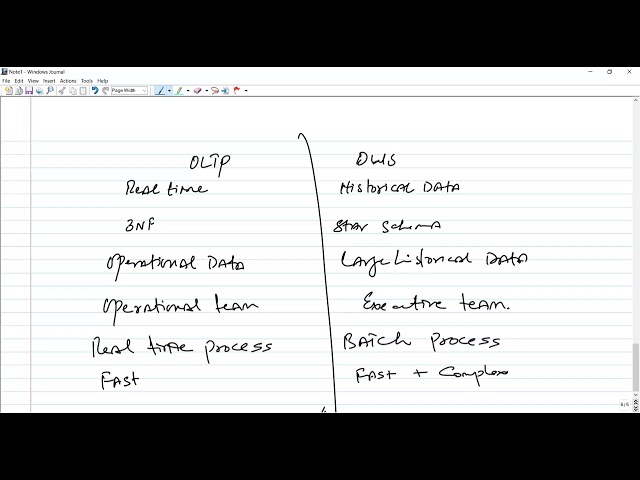 Note1 - Windows Journal
File Edit View Insert Actions Tools Help
Page Width
OLTP DWS
Real time Historical DATA
3NF Star Schema
Operational DATA Large historical DATA
Operational team Executive team.
Real time process BATCH process
FAST FAST + Complex
6/6